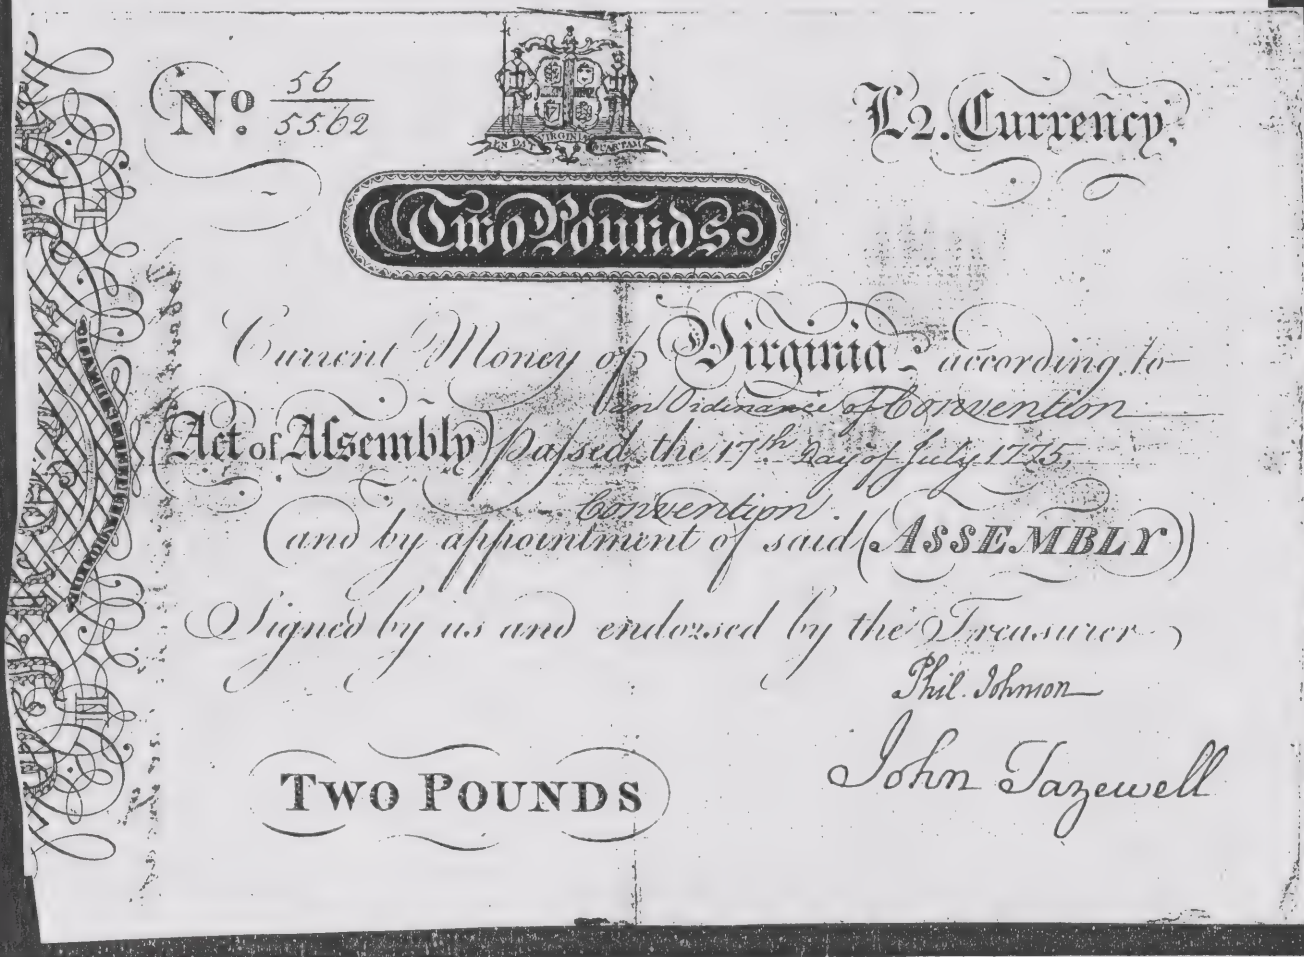 No. 56
5562
£2. Currency,
EN DAT VIRGINIA QUARTAM
Two Pounds
Current Money of Virginia - according to
an Ordinance of Convention
(Act of Aſsembly) paſsed the 17th Day of July 1775,
Convention
(and by appointment of said (ASSEMBLY))
Signed by us and endorsed by the Treasurer
Phil. Johnson
John Tazewell
TWO POUNDS